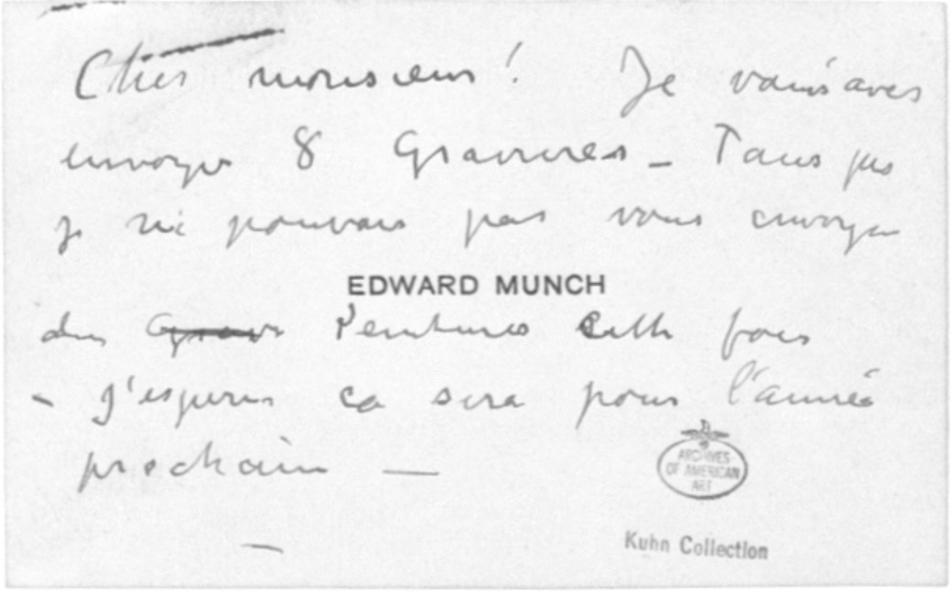 Cher monsieur! Je vous aves
envoyer 8 Gravures – Tous pus
je ne pouvais pas vous envoyer
EDWARD MUNCH
des Peintures cette fois
- j'esperes ca sera pour l'année
prochain —
ARCHIVES
OF AMERICAN
ART
Kuhn Collection